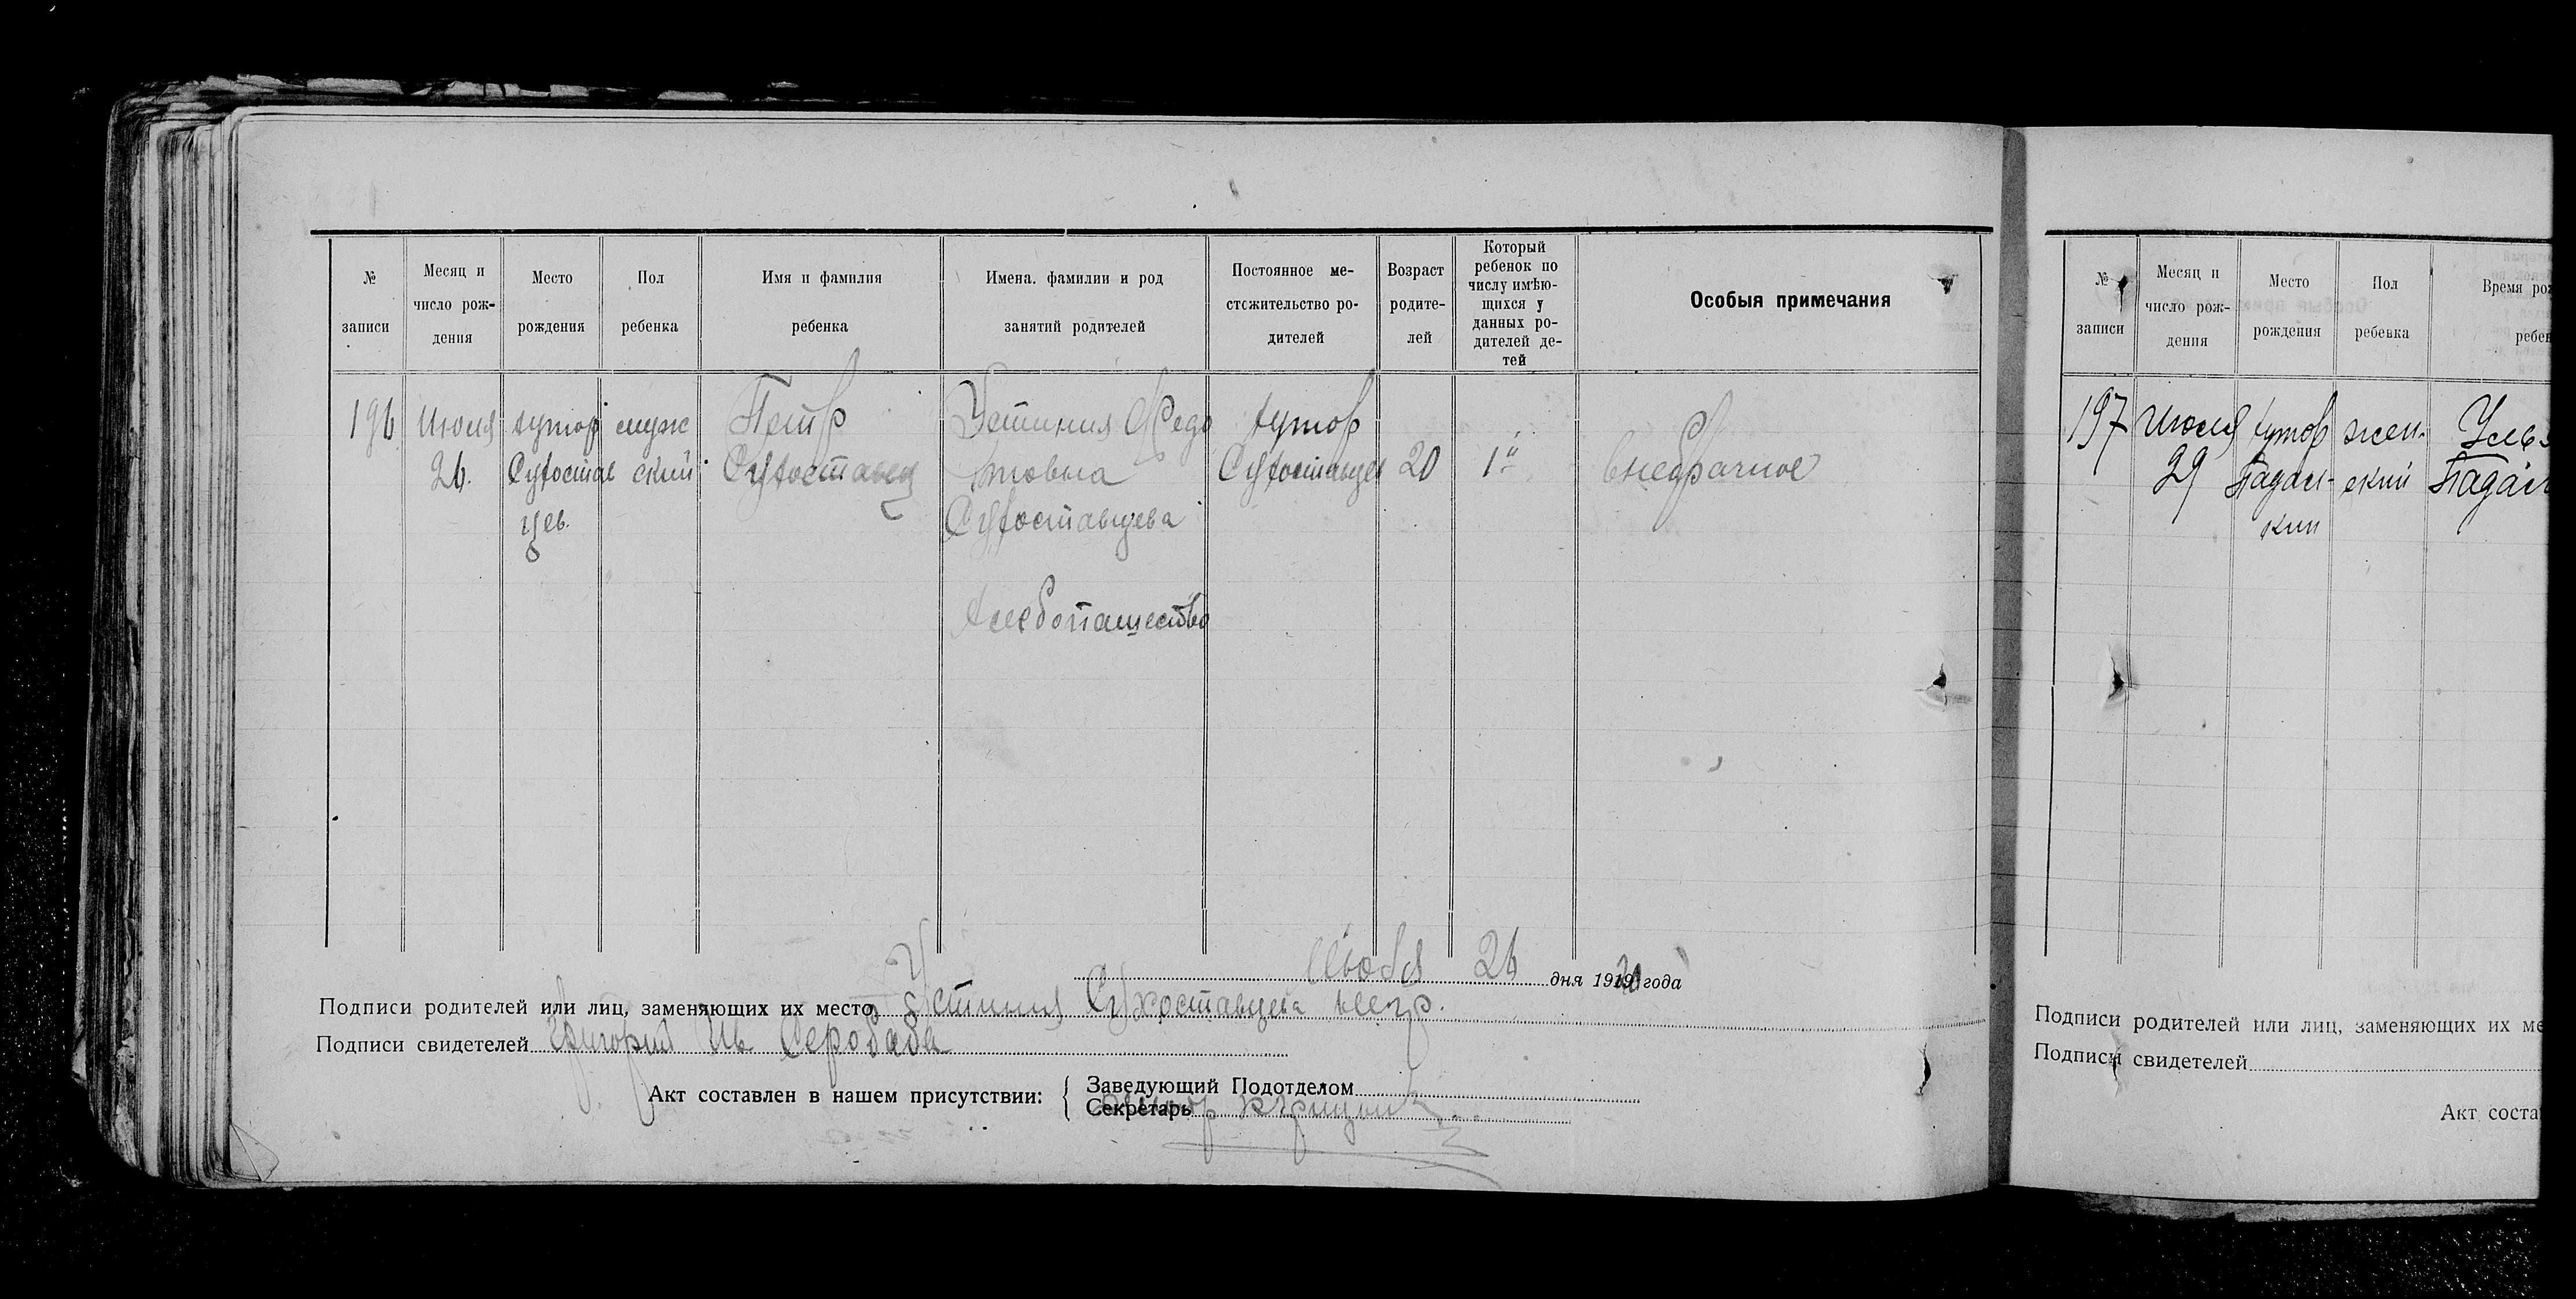 № записи
Месяц и число рождения
Место рождения
Пол ребенка
Имя и фамилия ребенка
Имена. фамилии и род занятий родителей
Постоянное местожительство родителей
Возраст родителей
Который ребенок по числу имѣющихся у данных родителей детей
Особыя примечания
196
Июля
26.
хутор
Сухостав
цев.
муж
ский
Петр
Сухоставец
Устиния Федо
товна
Сухоставцева
хлебопашество
хутор
Сухоставцев
20
1й
внебрачное
26 дня 1920 года
Подписи родителей или лиц, заменяющих их место Устиния Сухоставцева негр.
Подписи свидетелей Григорий Ив
Акт составлен в нашем присутствии:
Заведующий Подотделом
Секретарь
№ записи
Месяц и число рождения
Место рождения
Пол ребенка
Время
197
Июля
29
хутов
Падал-
кин
жен-
ский
Подписи родителей или лиц, заменяющих их ме
Подписи свидетелей
Акт соста